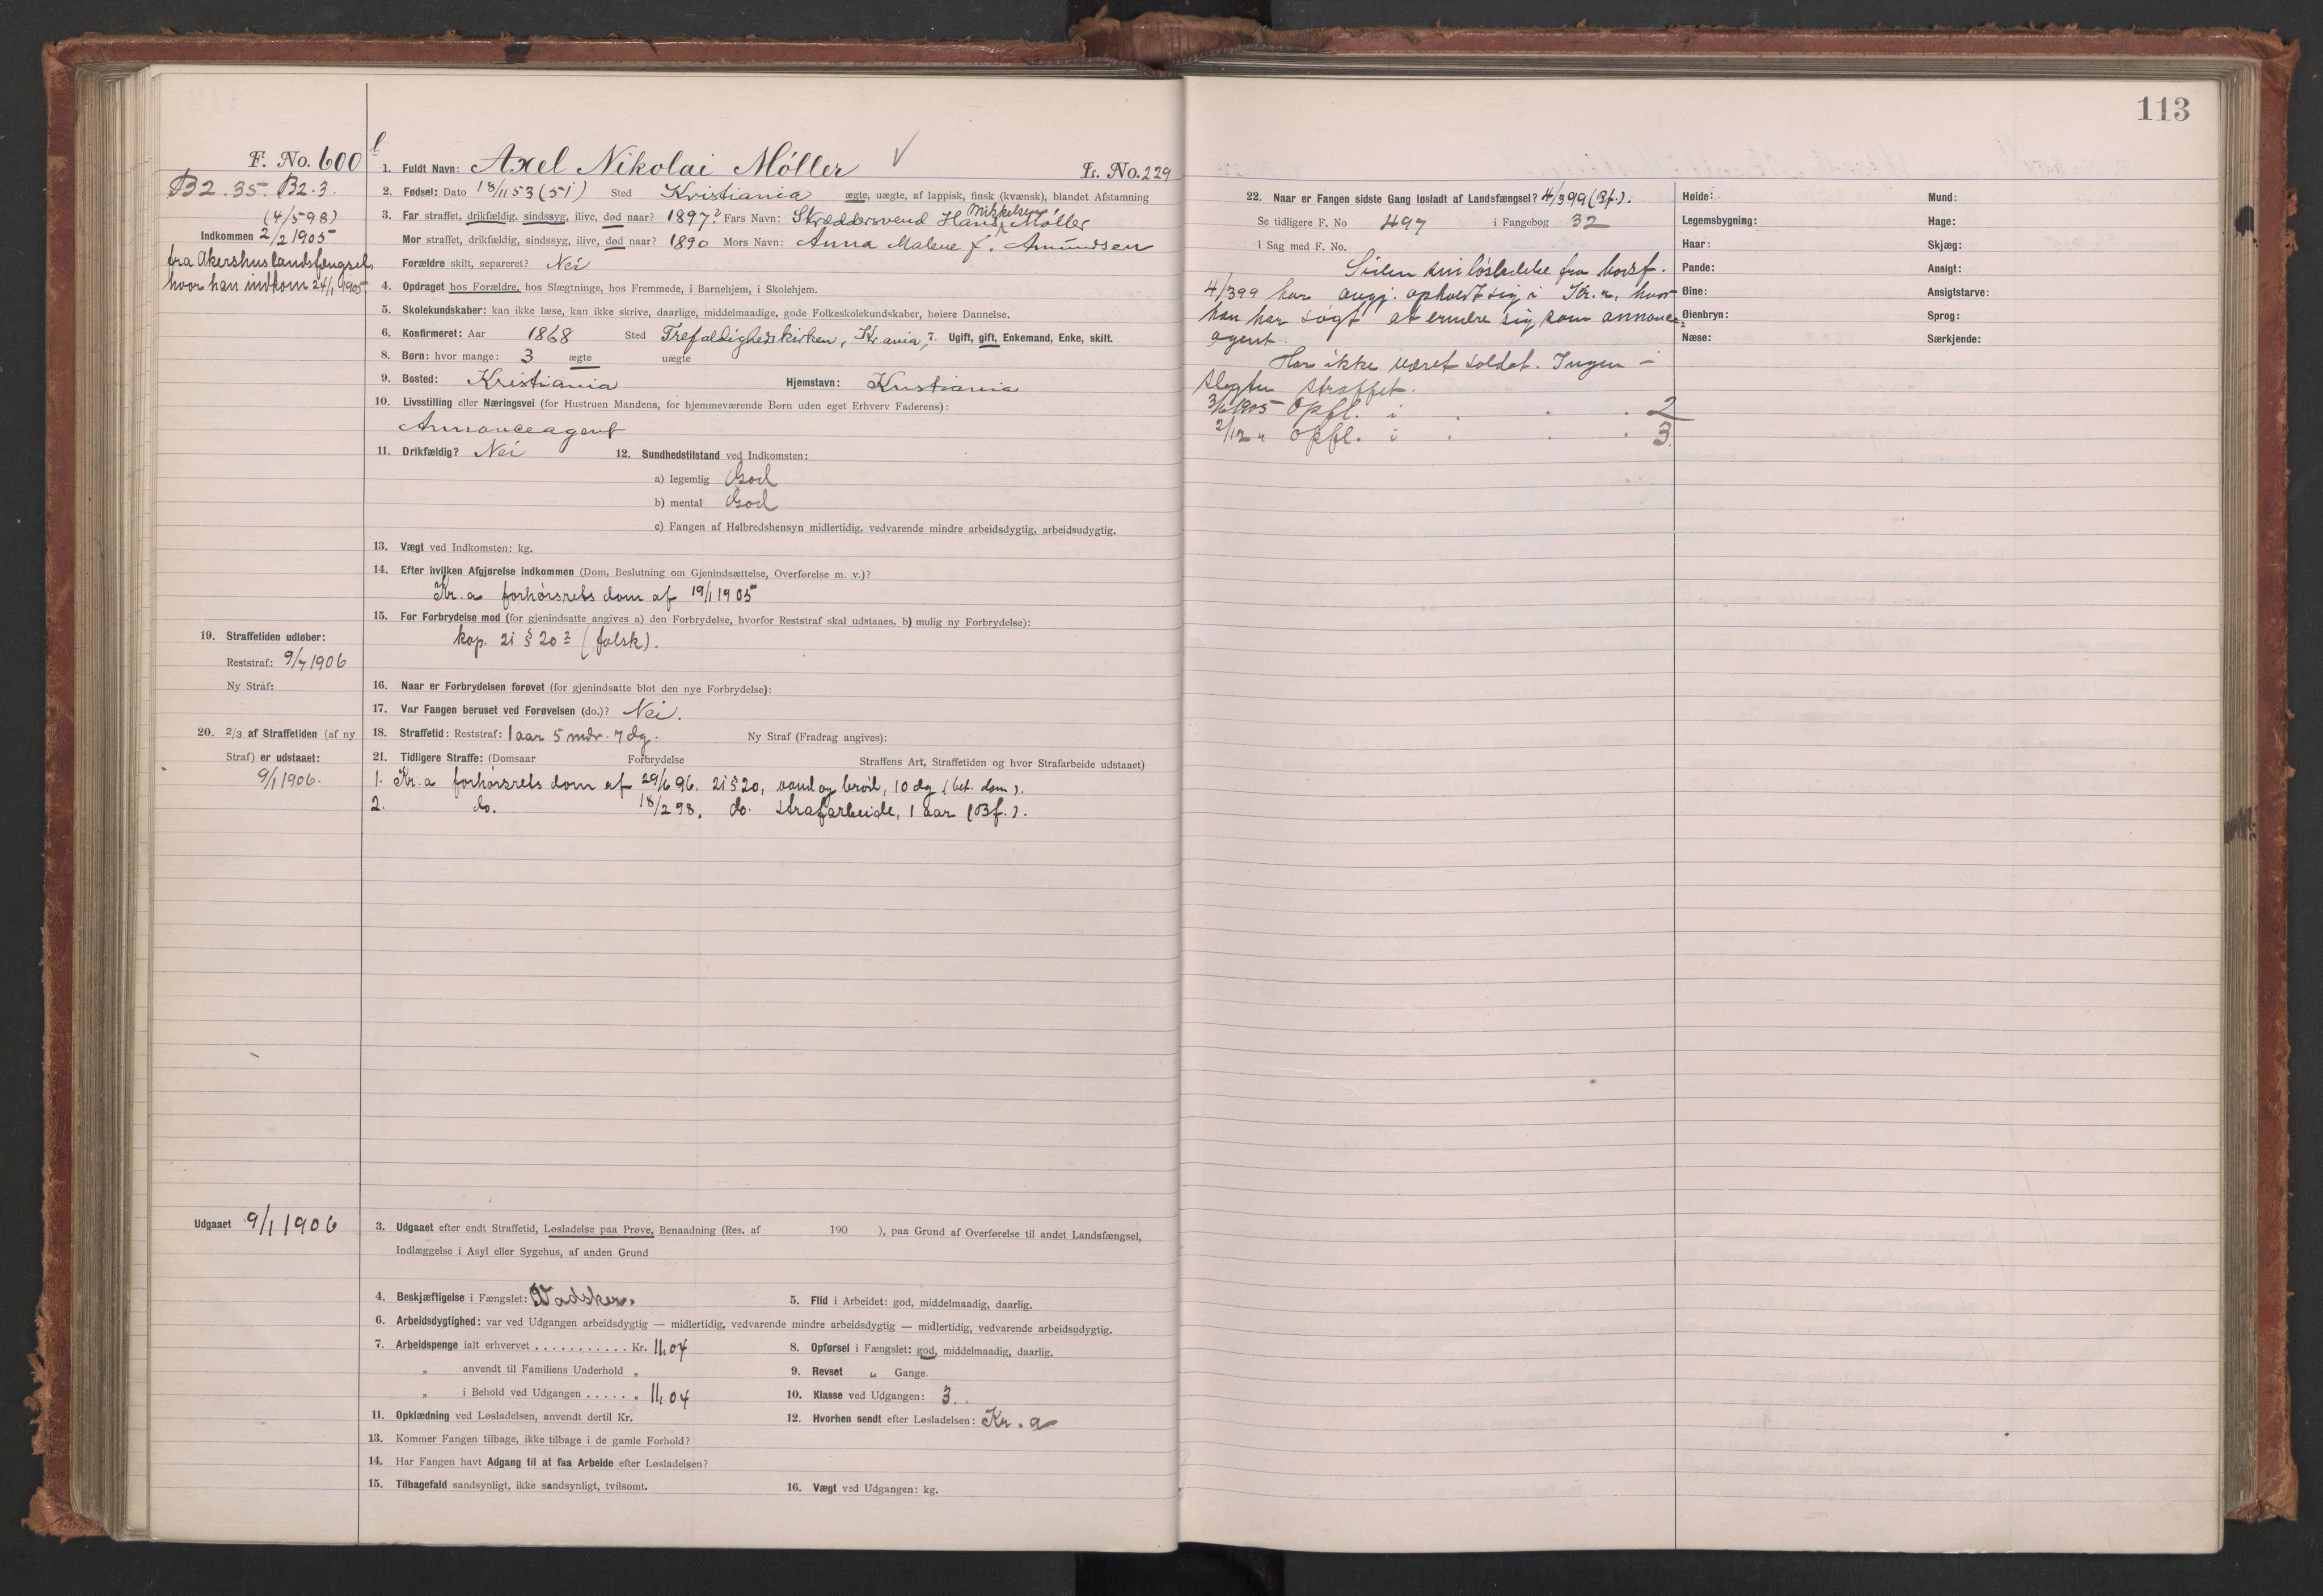 113
F. No. 600
1. Fuldt Navn: Axel Nikolai Möller
L. No. 229
B2.35. B2.3.
(4/5 98)
Indkommen 2/2 1905
fra Akershus landsfængsel,
hvor han indkom 24/1 1905
2. Fødsel: Dato 18/11 53 (51) Sted Kristiania ægte, uægte, af lappisk, finsk (kvænsk), blandet Afstamning
3. Far straffet, drikfældig, sindssyg, ilive, død naar? 1897? Fars Navn: Skræddersvend Hans Mikkelsen Möller
Mor straffet, drikfældig, sindssyg, ilive, død naar? 1890 Mors Navn: Anna Malene f. Amundsen
Forældre skilt, separeret? Nei
4. Opdraget hos Forældre, hos Slægtninge, hos Fremmede, i Barnehjem, i Skolehjem.
5. Skolekundskaber: kan ikke læse, kan ikke skrive, daarlige, middelmaadige, gode Folkeskolekundskaber, høiere Dannelse.
6. Konfirmeret: Aar 1868 Sted Trefoldighedskirken, Kr.ania, 7. Ugift, gift, Enkemand, Enke, skilt.
8. Børn: hvor mange: 3 ægte uægte
9. Bosted: Kristiania Hjemstavn: Kristiania
10. Livsstilling eller Næringsvei (for Hustruen Mandens, for hjemmeværende Børn uden eget Erhverv Faderens):
Annonceagent
11. Drikfældig? Nei 12. Sundhedstilstand ved Indkomsten:
a) legemlig God
b) mental God
c) Fangen af Helbredshensyn midlertidig, vedvarende mindre arbeidsdygtig, arbeidsudygtig.
13. Vægt ved Indkomsten: kg.
14. Efter hvilken Afgjørelse indkommen (Dom, Beslutning om Gjenindsættelse, Overførelse m. v.)?
Kr.a forhörsrets dom af 19/1 1905
15. For Forbrydelse mod (for gjenindsatte angives a) den Forbrydelse, hvorfor Reststraf skal udstaaes, b) mulig ny Forbrydelse):
kap. 21 § 20 2 (falsk).
19. Straffetiden udløber:
Reststraf: 9/7 1906
Ny Straf:
16. Naar er Forbrydelsen forøvet (for gjenindsatte blot den nye Forbrydelse):
17. Var Fangen beruset ved Forøvelsen (do.)? Nei.
20. 2/3 af Straffetiden (af ny
Straf) er udstaaet:
9/1 1906.
18. Straffetid: Reststraf: 1 aar 5 mdr. 7 dg. Ny Straf (Fradrag angives):
21. Tidligere Straffe: (Domsaar Forbrydelse Straffens Art, Straffetiden og hvor Strafarbeide udstaaet)
1. Kr.a forhörsrets dom af 29/6 96. 21 § 20, vand og bröd, 10 dg (bet. dom).
2. do. 18/2 98, do. strafarbeide, 1 aar (Bf.).
Udgaaet 9/1 1906
3. Udgaaet efter endt Straffetid, Løsladelse paa Prøve, Benaadning (Res. af 190 ), paa Grund af Overførelse til andet Landsfængsel,
Indlæggelse i Asyl eller Sygehus, af anden Grund
4. Beskjæftigelse i Fængslet: Vadsker. 5. Flid i Arbeidet: god, middelmaadig, daarlig.
6. Arbeidsdygtighed: var ved Udgangen arbeidsdygtig — midlertidig, vedvarende mindre arbeidsdygtig — midlertidig, vedvarende arbeidsudygtig.
7. Arbeidspenge ialt erhvervet . . . . . . . . . . . Kr. 11,04 8. Opførsel i Fængslet: god, middelmaadig, daarlig.
„ anvendt til Familiens Underhold „ 9. Revset „ Gange.
„ i Behold ved Udgangen . . . . . „ 11,04 10. Klasse ved Udgangen: 3.
11. Opklædning ved Løsladelsen, anvendt dertil Kr. 12. Hvorhen sendt efter Løsladelsen: Kr.a
13. Kommer Fangen tilbage, ikke tilbage i de gamle Forhold?
14. Har Fangen havt Adgang til at faa Arbeide efter Løsladelsen?
15. Tilbagefald sandsynligt, ikke sandsynligt, tvilsomt. 16. Vægt ved Udgangen: kg.
22. Naar er Fangen sidste Gang løsladt af Landsfængsel? 4/3 99 (Bf.).
Se tidligere F. No 497 i Fangebog 32
I Sag med F. No.
Siden sin lösladelse fra bodsf.
4/3 99 har angj. opholdt sig i Kr.a, hvor
han har sögt at ernære sig som annonce-
agent.
Har ikke været soldat. Ingen i
slegten straffet.
3/6 1905 opfl. i . . . 2
2/12 " opfl. i . . . 3.
Høide: Mund:
Legemsbygning: Hage:
Haar: Skjæg:
Pande: Ansigt:
Øine: Ansigtstarve:
Øienbryn: Sprog:
Næse: Særkjende: